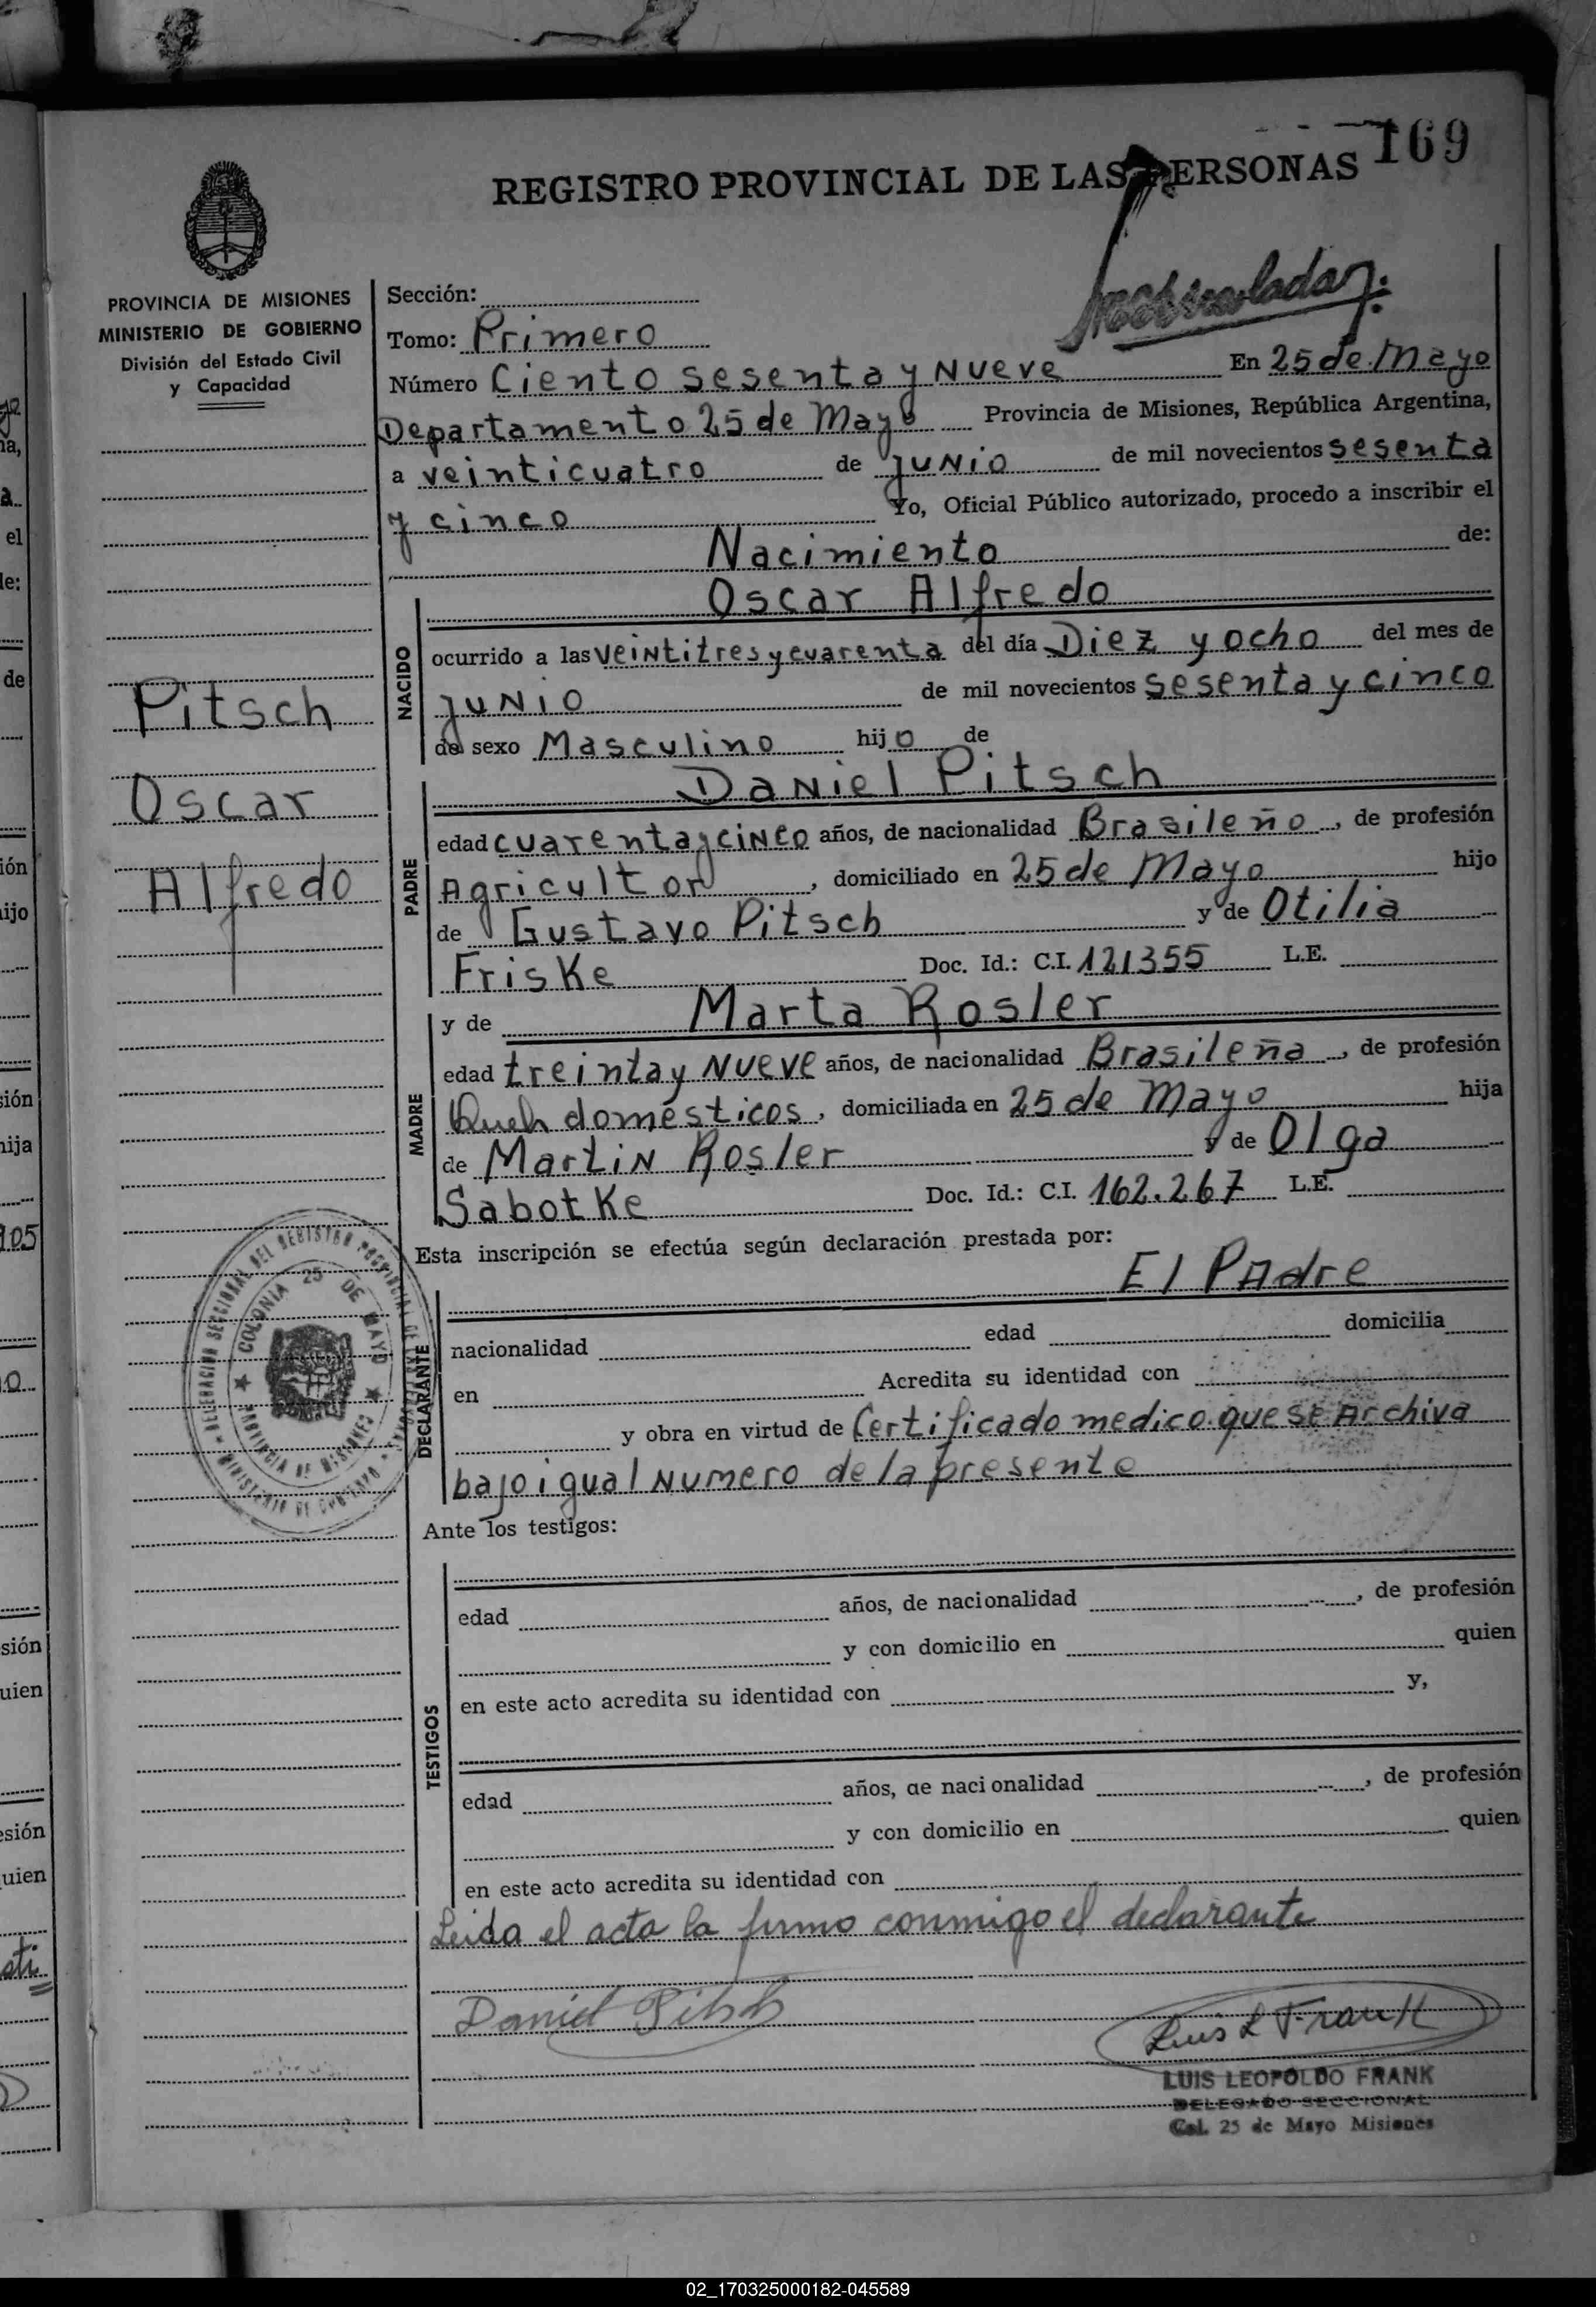 169
REGISTRO PROVINCIAL DE LAS PERSONAS
PROVINCIA DE MISIONES
MINISTERIO DE GOBIERNO
División del Estado Civil
y Capacidad
Pitsch
Oscar
Alfredo
Sección:
Tomo: Primero
Número Ciento sesenta y Nueve En 25 de Mayo
Departamento 25 de Mayo Provincia de Misiones, República Argentina,
a veinticuatro de junio de mil novecientos sesenta
y cinco Yo, Oficial Público autorizado, procedo a inscribir el
Nacimiento de:
Oscar Alfredo
NACIDO
ocurrido a las veintitres y cuarenta del día Diez y ocho del mes de
junio de mil novecientos sesenta y cinco
de sexo Masculino hijo de
Daniel Pitsch
PADRE
edad cuarenta y cinco años, de nacionalidad Brasileño, de profesión
Agricultor, domiciliado en 25 de Mayo hijo
de Gustavo Pitsch y de Otilia
Friske Doc. Id.: C.I. 121355 L.E.
y de Marta Rosler
MADRE
edad treinta y Nueve años, de nacionalidad Brasileña, de profesión
domésticos, domiciliada en 25 de Mayo hija
de Martin Rosler y de Olga
Sabotke Doc. Id.: C.I. 162.267 L.E.
Esta inscripción se efectúa según declaración prestada por:
El Padre
DECLARANTE
nacionalidad edad domicilia
en Acredita su identidad con
y obra en virtud de Certificado medico que se Archiva
bajo igual Numero de la presente
Ante los testigos:
TESTIGOS
edad años, de nacionalidad , de profesión
y con domicilio en quien
en este acto acredita su identidad con y,
edad años, de nacionalidad , de profesión
y con domicilio en quien
en este acto acredita su identidad con
Leida el acta la firmo conmigo el declarante
Daniel Pitsch
Luis L Frank
LUIS LEOPOLDO FRANK
DELEGADO SECCIONAL
Col. 25 de Mayo Misiones
COLONIA 25 DE MAYO
PROVINCIA DE MISIONES
02_170325000182-045589